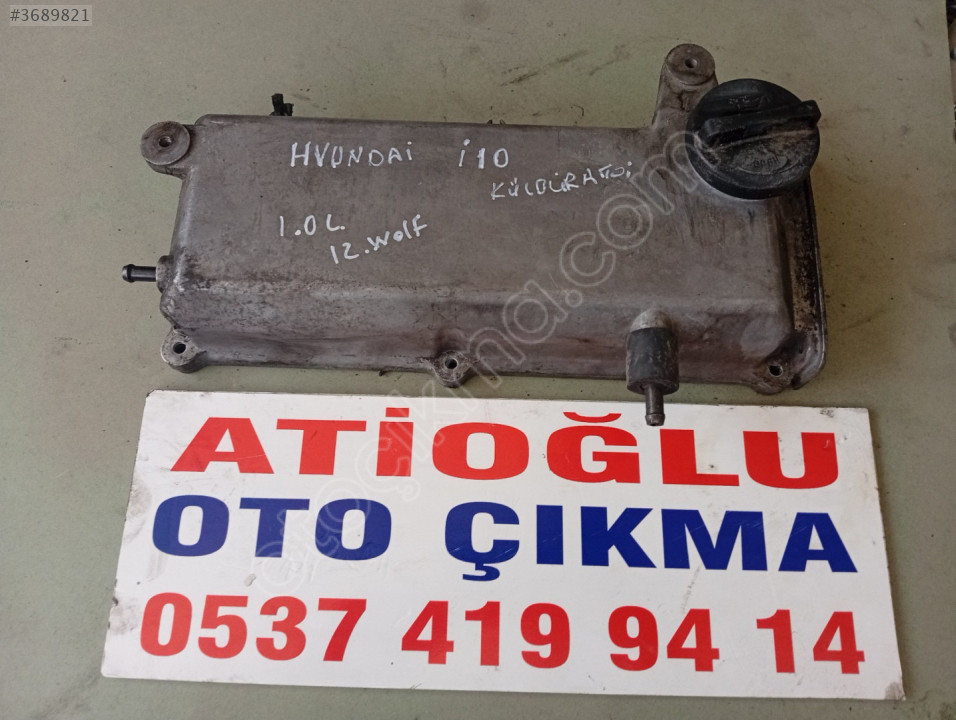 #3689821
HVUNDAİ i10
KÜLBÜRATÖİ
1.0 L.
12.wolf
otoçıkma.com
ATİOĞLU
OTO ÇIKMA
0537 419 94 14